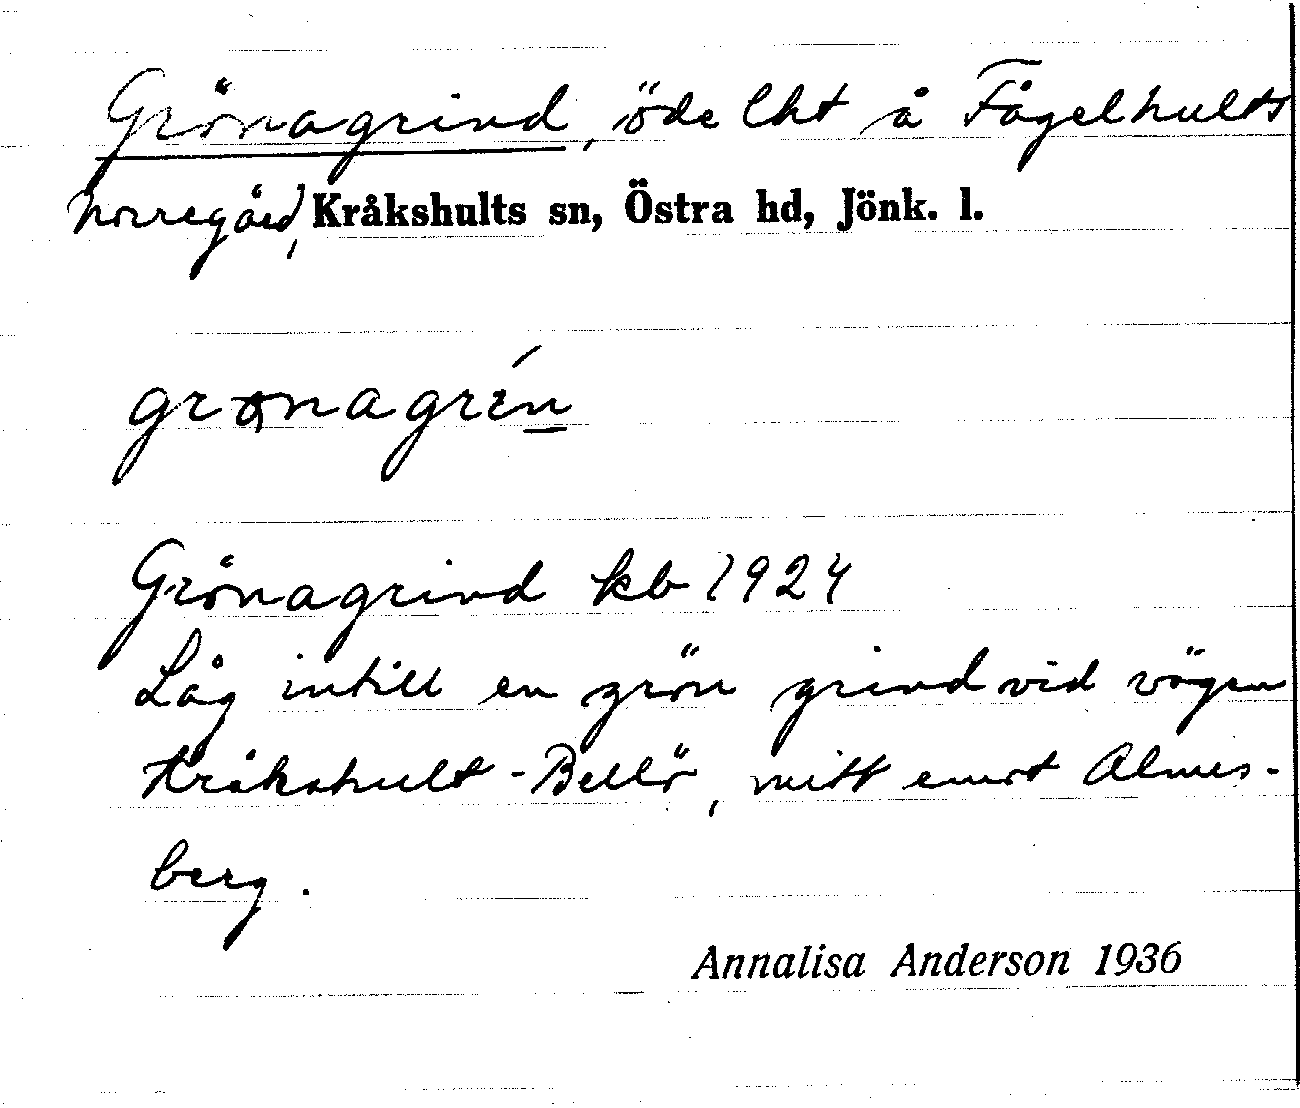 Grönagrind, öde lht å Fågelhults
Norregård, Kråkshults sn, Östra hd, Jönk. l.
grönagrín
Grönagrind kb 1924
Låg intill en grön grind vid vägen
Kråkshult - Bellö, mitt emot Almes-
berg.
Annalisa Anderson 1936